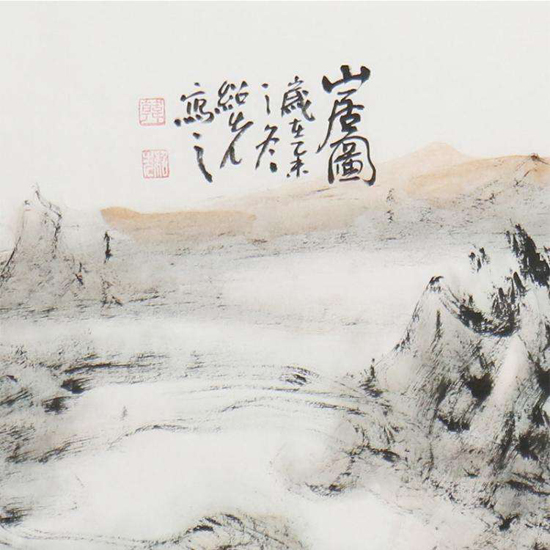 山居圖
歲在乙未
之冬
紹先
寫之